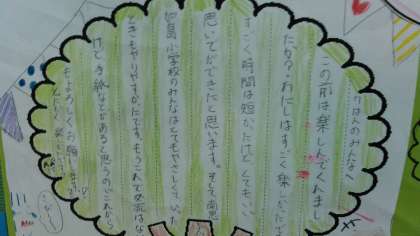 のはんのみんなへ
この前は楽しんでくれまし
たか?わたしはすごく楽しかったです
すごく時間は短かたけどとてもいい
思いでができたと思います。そして南恩
加島小学校のみんなはとてもやさしくていった
ときもやりやすかたです。もうこれで交流はな
いけど手紙などがあると思うのでこれから
もよろしくお願い